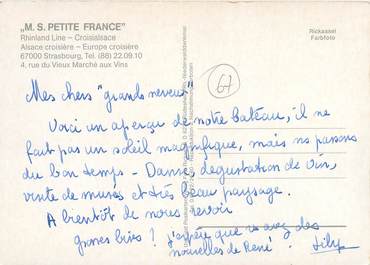 „M. S. PETITE FRANCE"
Rhinland Line – Croisialsace
Alsace croisière – Europe croisière
67000 Strasbourg, Tel. (88) 22.09.10
4, rue du Vieux Marché aux Vins
Rickassel
Farbfoto
67
Mes chers "grands neveux"
Voici un aperçu de notre bateau, il ne
fait pas un soleil magnifique, mais ns passons
du bon temps – Danse, dégustation de vin,
visite de musés et très beau paysage.
A bientôt de nous revoir
grosses bises ! J'espère que vs avez des
nouvelles de René !